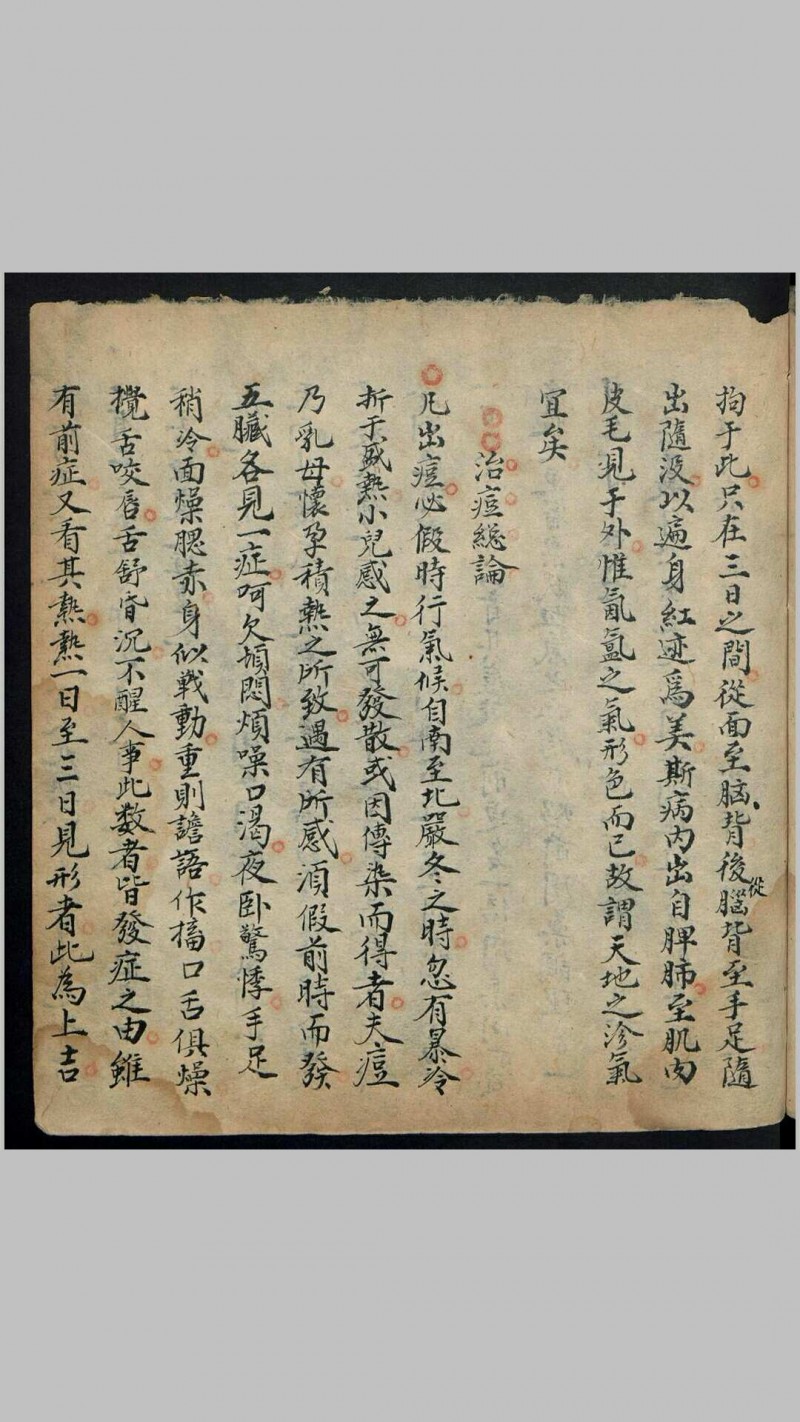 拘于此只在三日之間從面至脑背後從腦背至手足隨
出隨没以遍身紅迹爲美斯病内出自脾肺至肌肉
皮毛見于外惟氤氲之氣形色而已故謂天地之沴氣
宜矣
治痘総論
凡出痘必假時行氣候自南至北嚴冬之時忽有暴冷
折于盛熱小兒感之無可發散或因傳染而得者夫痘
乃乳母懷孕積熱之所致遇有所感須假前時而發
五臟各見一症呵欠頓悶煩噪口渴夜卧驚悸手足
稍冷面燥腮赤身似戰動重則譫語作搐口舌俱燥
攪舌咬唇舌舒昏沉不醒人事此数者皆發症之由雖
有前症又看其熱熱一日至三日見形者此為上吉